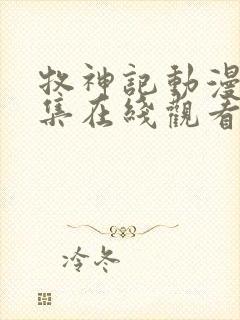 牧神記動漫
集在綫觀看
冷冬